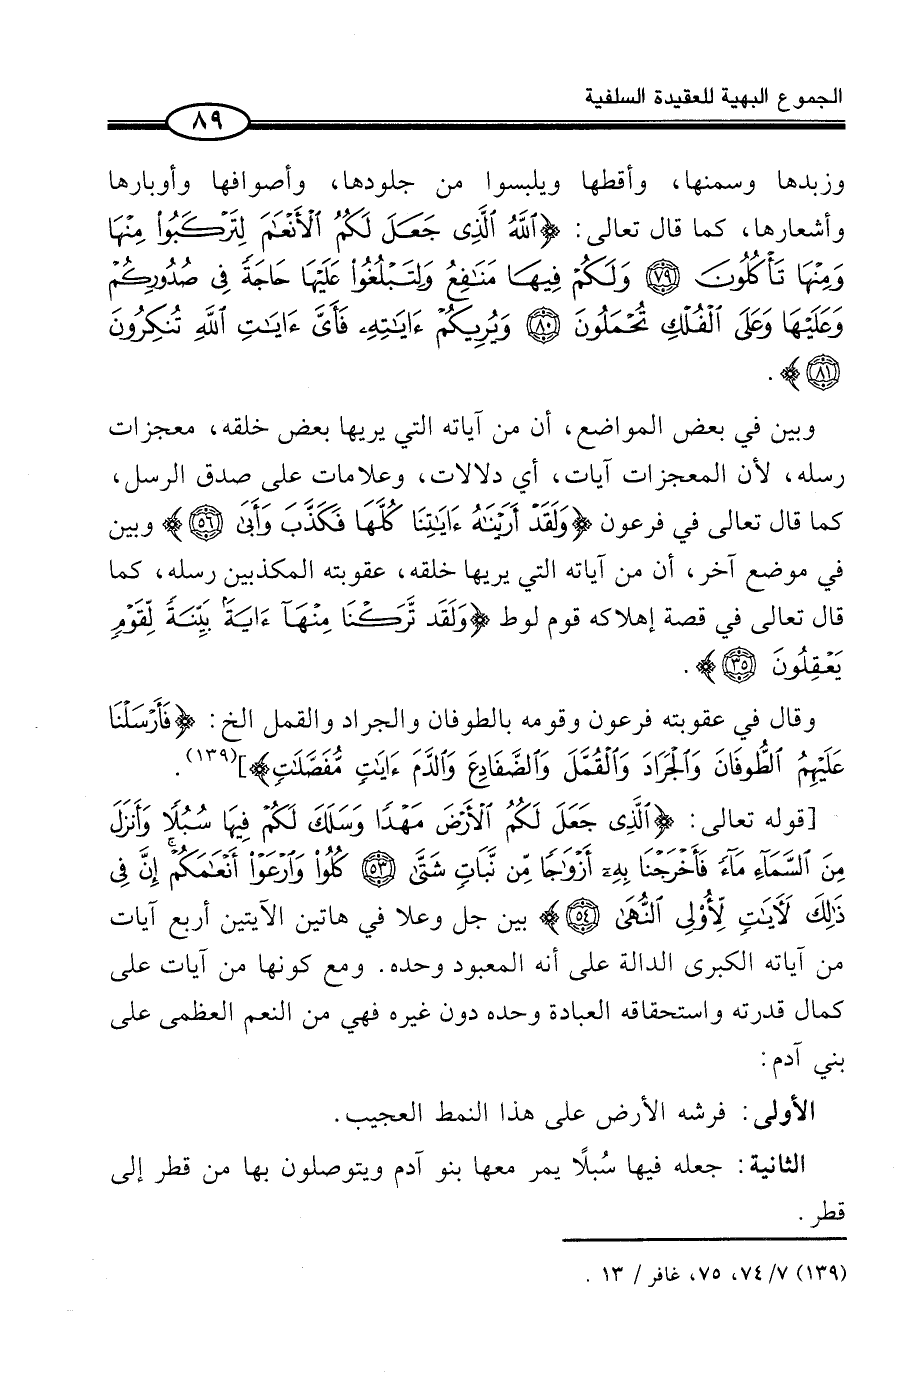 الجموع البهية للعقيدة السلفية
٨٩
وزبدها وسمنها، وأقطها ويلبسوا من جلودها، وأصوافها وأوبارها
وأشعارها، كما قال تعالى: ﴿ٱللَّهُ ٱلَّذِى جَعَلَ لَكُمُ ٱلْأَنْعَٰمَ لِتَرْكَبُوا۟ مِنْهَا
وَمِنْهَا تَأْكُلُونَ ﴿٧٩﴾ وَلَكُمْ فِيهَا مَنَٰفِعُ وَلِتَبْلُغُوا۟ عَلَيْهَا حَاجَةً فِى صُدُورِكُمْ
وَعَلَيْهَا وَعَلَى ٱلْفُلْكِ تُحْمَلُونَ ﴿٨٠﴾ وَيُرِيكُمْ ءَايَٰتِهِۦ فَأَىَّ ءَايَٰتِ ٱللَّهِ تُنكِرُونَ
﴿٨١﴾﴾ .
وبين في بعض المواضع، أن من آياته التي يريها بعض خلقه، معجزات
رسله، لأن المعجزات آيات، أي دلالات، وعلامات على صدق الرسل،
كما قال تعالى في فرعون ﴿وَلَقَدْ أَرَيْنَٰهُ ءَايَٰتِنَا كُلَّهَا فَكَذَّبَ وَأَبَىٰ ﴿٥٦﴾﴾ وبين
في موضع آخر، أن من آياته التي يريها خلقه، عقوبته المكذبين رسله، كما
قال تعالى في قصة إهلاكه قوم لوط ﴿وَلَقَد تَّرَكْنَا مِنْهَآ ءَايَةًۢ بَيِّنَةً لِّقَوْمٍ
يَعْقِلُونَ ﴿٣٥﴾﴾ .
وقال في عقوبته فرعون وقومه بالطوفان والجراد والقمل الخ: ﴿فَأَرْسَلْنَا
عَلَيْهِمُ ٱلطُّوفَانَ وَٱلْجَرَادَ وَٱلْقُمَّلَ وَٱلضَّفَادِعَ وَٱلدَّمَ ءَايَٰتٍ مُّفَصَّلَٰتٍ﴾](١٣٩) .
[قوله تعالى: ﴿ٱلَّذِى جَعَلَ لَكُمُ ٱلْأَرْضَ مَهْدًا وَسَلَكَ لَكُمْ فِيهَا سُبُلًا وَأَنزَلَ
مِنَ ٱلسَّمَآءِ مَآءً فَأَخْرَجْنَا بِهِۦٓ أَزْوَٰجًا مِّن نَّبَاتٍ شَتَّىٰ ﴿٥٣﴾ كُلُوا۟ وَٱرْعَوْا۟ أَنْعَٰمَكُمْ ۗ إِنَّ فِى
ذَٰلِكَ لَـَٔايَٰتٍ لِّأُو۟لِى ٱلنُّهَىٰ ﴿٥٤﴾﴾ بين جل وعلا في هاتين الآيتين أربع آيات
من آياته الكبرى الدالة على أنه المعبود وحده. ومع كونها من آيات على
كمال قدرته واستحقاقه العبادة وحده دون غيره فهي من النعم العظمى على
بني آدم:
الأولى: فرشه الأرض على هذا النمط العجيب.
الثانية: جعله فيها سُبلًا يمر معها بنو آدم ويتوصلون بها من قطر إلى
قطر .
(١٣٩) ٧/ ٧٤، ٧٥، غافر / ١٣ .